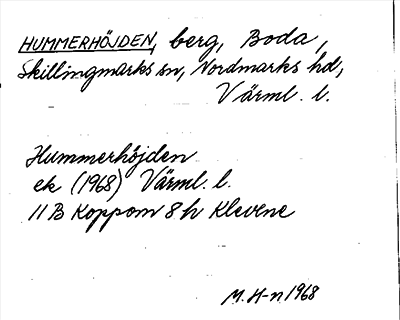 HUMMERHÖJDEN, berg, Boda,
Skillingmarks sn, Nordmarks hd,
Värml. l.
Hummerhöjden
ek (1968) Värml. l.
11 B Koppom 8 h Klevene
M. H-n 1968